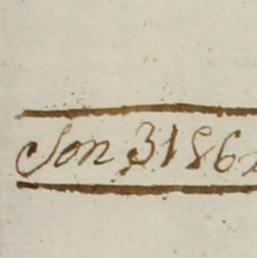 Jan 3 186